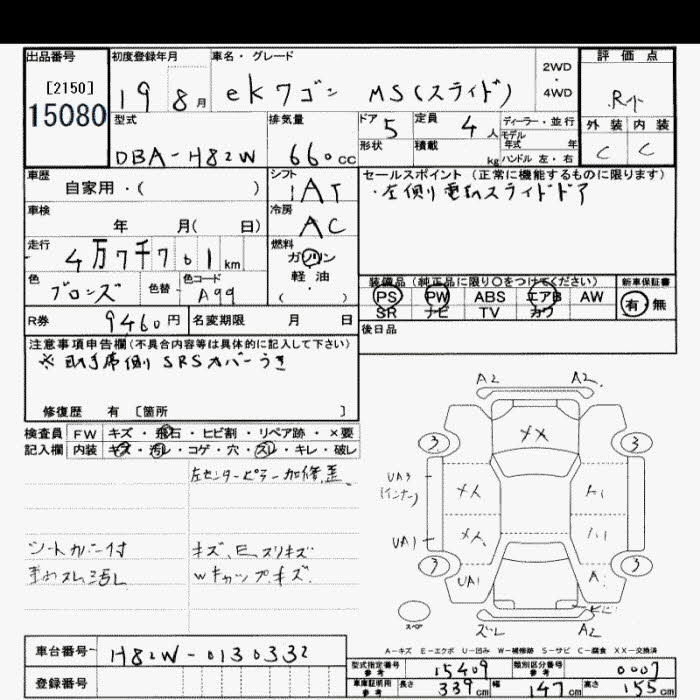 出品番号
[2150]
15080
初度登録年月
19 8月
車名・グレード
ekワゴン MS(スライド)
2WD
・
4WD
評価点
R
外装 内装
C C
型式
DBA-H82W
排気量
660cc
ドア
5
定員
4人
ディーラー・並行
モデル
年式 年
形状
積載
kg
ハンドル 左・右
車歴
自家用・( )
シフト
IAT
セールスポイント(正常に機能するものに限ります)
・左側リ電動スライドドア
車検
年 月( 日)
冷房
AC
走行
4万7千761km
燃料
ガソリン
軽・油
( )
色
ブロンズ
色替
色コード
A99
装備品(純正品に限り○をつけてください)
PS PW ABS エアB AW
SR ナビ TV カワ
新車保証書
有・無
R券
9460円
名変期限 月 日
後日品
注意事項申告欄(不具合内容等は具体的に記入して下さい)
※助手席側SRSカバーうき
修復歴 有 [箇所 ]
検査員
記入欄
FW キズ・飛石・ヒビ割・リペア跡・×要
内装 キズ・汚レ・コゲ・穴・スレ・キレ・破レ
左センターピラー加修歪
シートカバー付
キズ、E、スリキズ
Wキャップキズ
A2 A2
3 3
XX
UA3
(インナー)
UA1
3 3
UA1 A
スペア
スレ A2
A-キズ E-エクボ U-凹み W-補修跡 S-サビ C-腐食 XX-交換済
車台番号
H82W-0130332
登録番号
型式指定番号
参考
15409
類別区分番号
参考
0007
車庫証明用
参考
長さ 339cm 幅 147cm 高さ 155cm